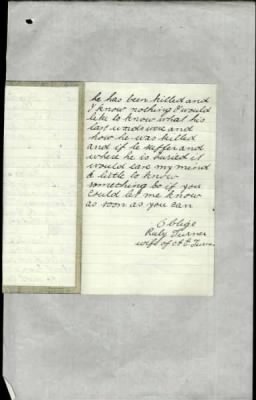 he has been killed and
I know nothing I would
like to know what his
last words were and
how he was killed
and if he suffer and
where he is buried it
would ease my mind
a little to know
something so if you
could let me know
as soon as you can
Oblige
Ruby Turner
wife of A E Turner